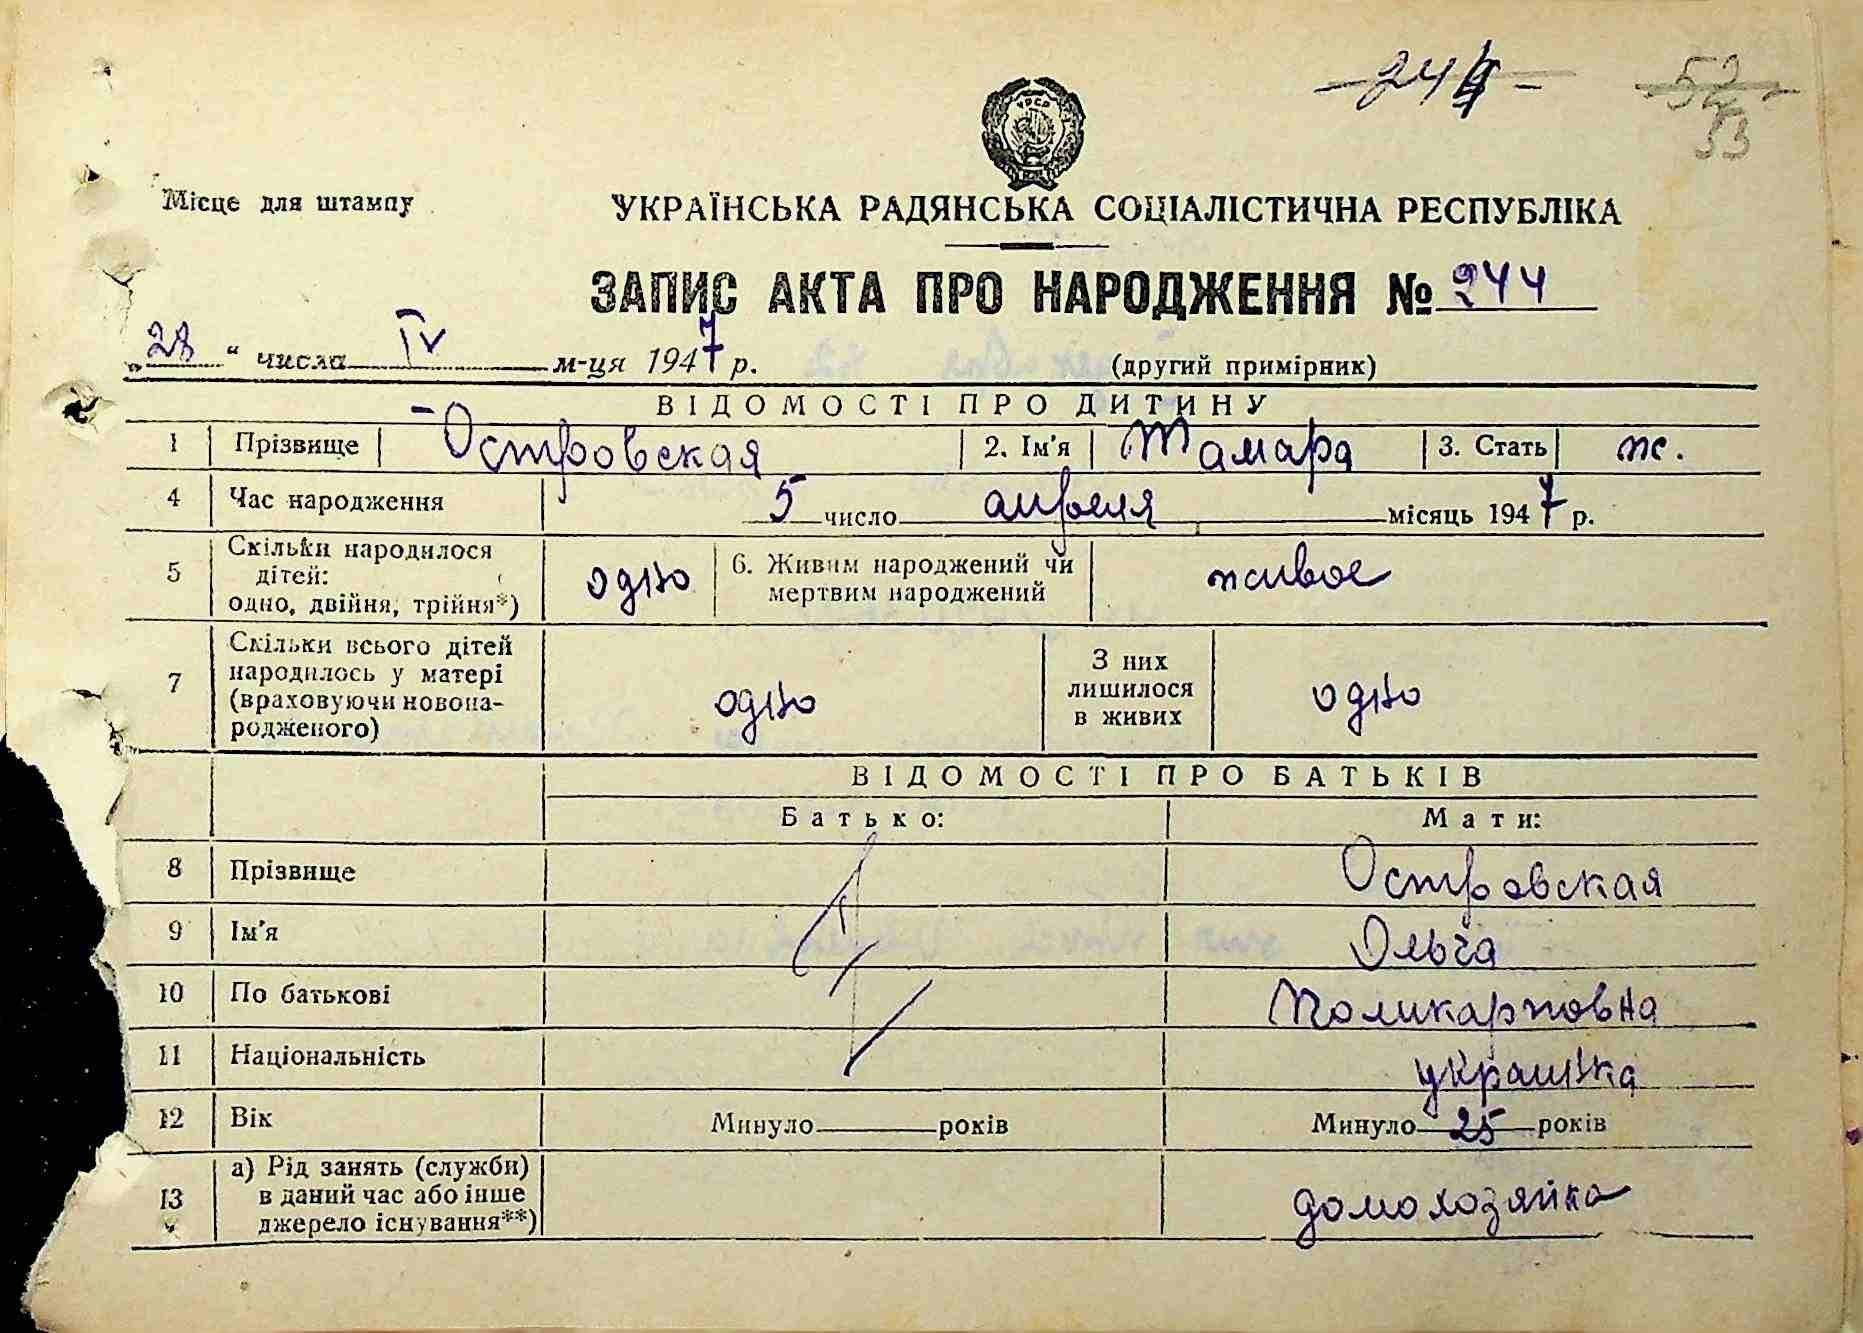 244
52
53
УРСР
Місце для штампу
УКРАЇНСЬКА РАДЯНСЬКА СОЦІАЛІСТИЧНА РЕСПУБЛІКА
ЗАПИС АКТА ПРО НАРОДЖЕННЯ № 244
„28“ числа IV м-ця 1947 р. (другий примірник)
ВІДОМОСТІ ПРО ДИТИНУ
1 Прізвище Островская 2. Ім'я Тамара 3. Стать ж.
4 Час народження 5 число апреля місяць 1947 р.
5 Скільки народилося дітей: одно, двійня, трійня*) одно 6. Живим народжений чи мертвим народжений живое
7 Скільки всього дітей народилось у матері (враховуючи новона-родженого) одно З них лишилося в живих одно
ВІДОМОСТІ ПРО БАТЬКІВ
Батько: Мати:
8 Прізвище Островская
9 Ім'я Ольга
10 По батькові Поликарповна
11 Національність украинка
12 Вік Минуло років Минуло 25 років
13 а) Рід занять (служби) в даний час або інше джерело існування**) домохозяйка